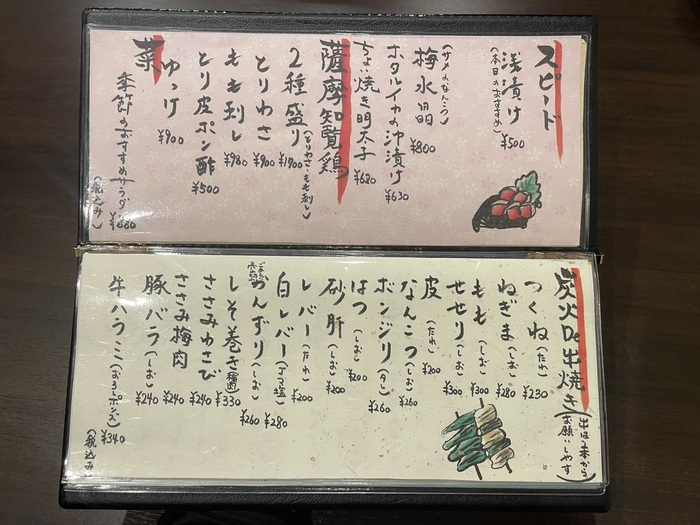 スピード
浅漬け ¥500
(本日のおすすめ)
梅水晶 ¥800
(サメのなんこつ)
ホタルイカの沖漬け ¥630
ちょい焼き明太子 ¥680
薩摩知覧鶏
2種盛り ¥1700
(とりわさ・もも刺し)
とりわさ ¥900
もも刺し ¥980
とり皮ポン酢 ¥500
ゆっけ ¥900
菜
季節のおすすめサラダ ¥680
(税込み)
炭火De串焼き
(串は2本から お願いしやす)
つくね(たれ) ¥230
ねぎま(しお) ¥280
もも(しお) ¥300
せせり(しお) ¥300
皮(たれ) ¥200
なんこつ(しお) ¥260
ボンジリ(タレ) ¥260
はつ(しお) ¥200
砂肝(しお) ¥200
レバー(たれ) ¥200
白レバー(ゴマ塩) ¥280
めんずり(しお) ¥260
しそ巻き ¥330
ささみわさび ¥240
ささみ梅肉 ¥240
豚バラ(しお) ¥240
牛ハラミ(おろしポンズ) ¥340
(税込み)